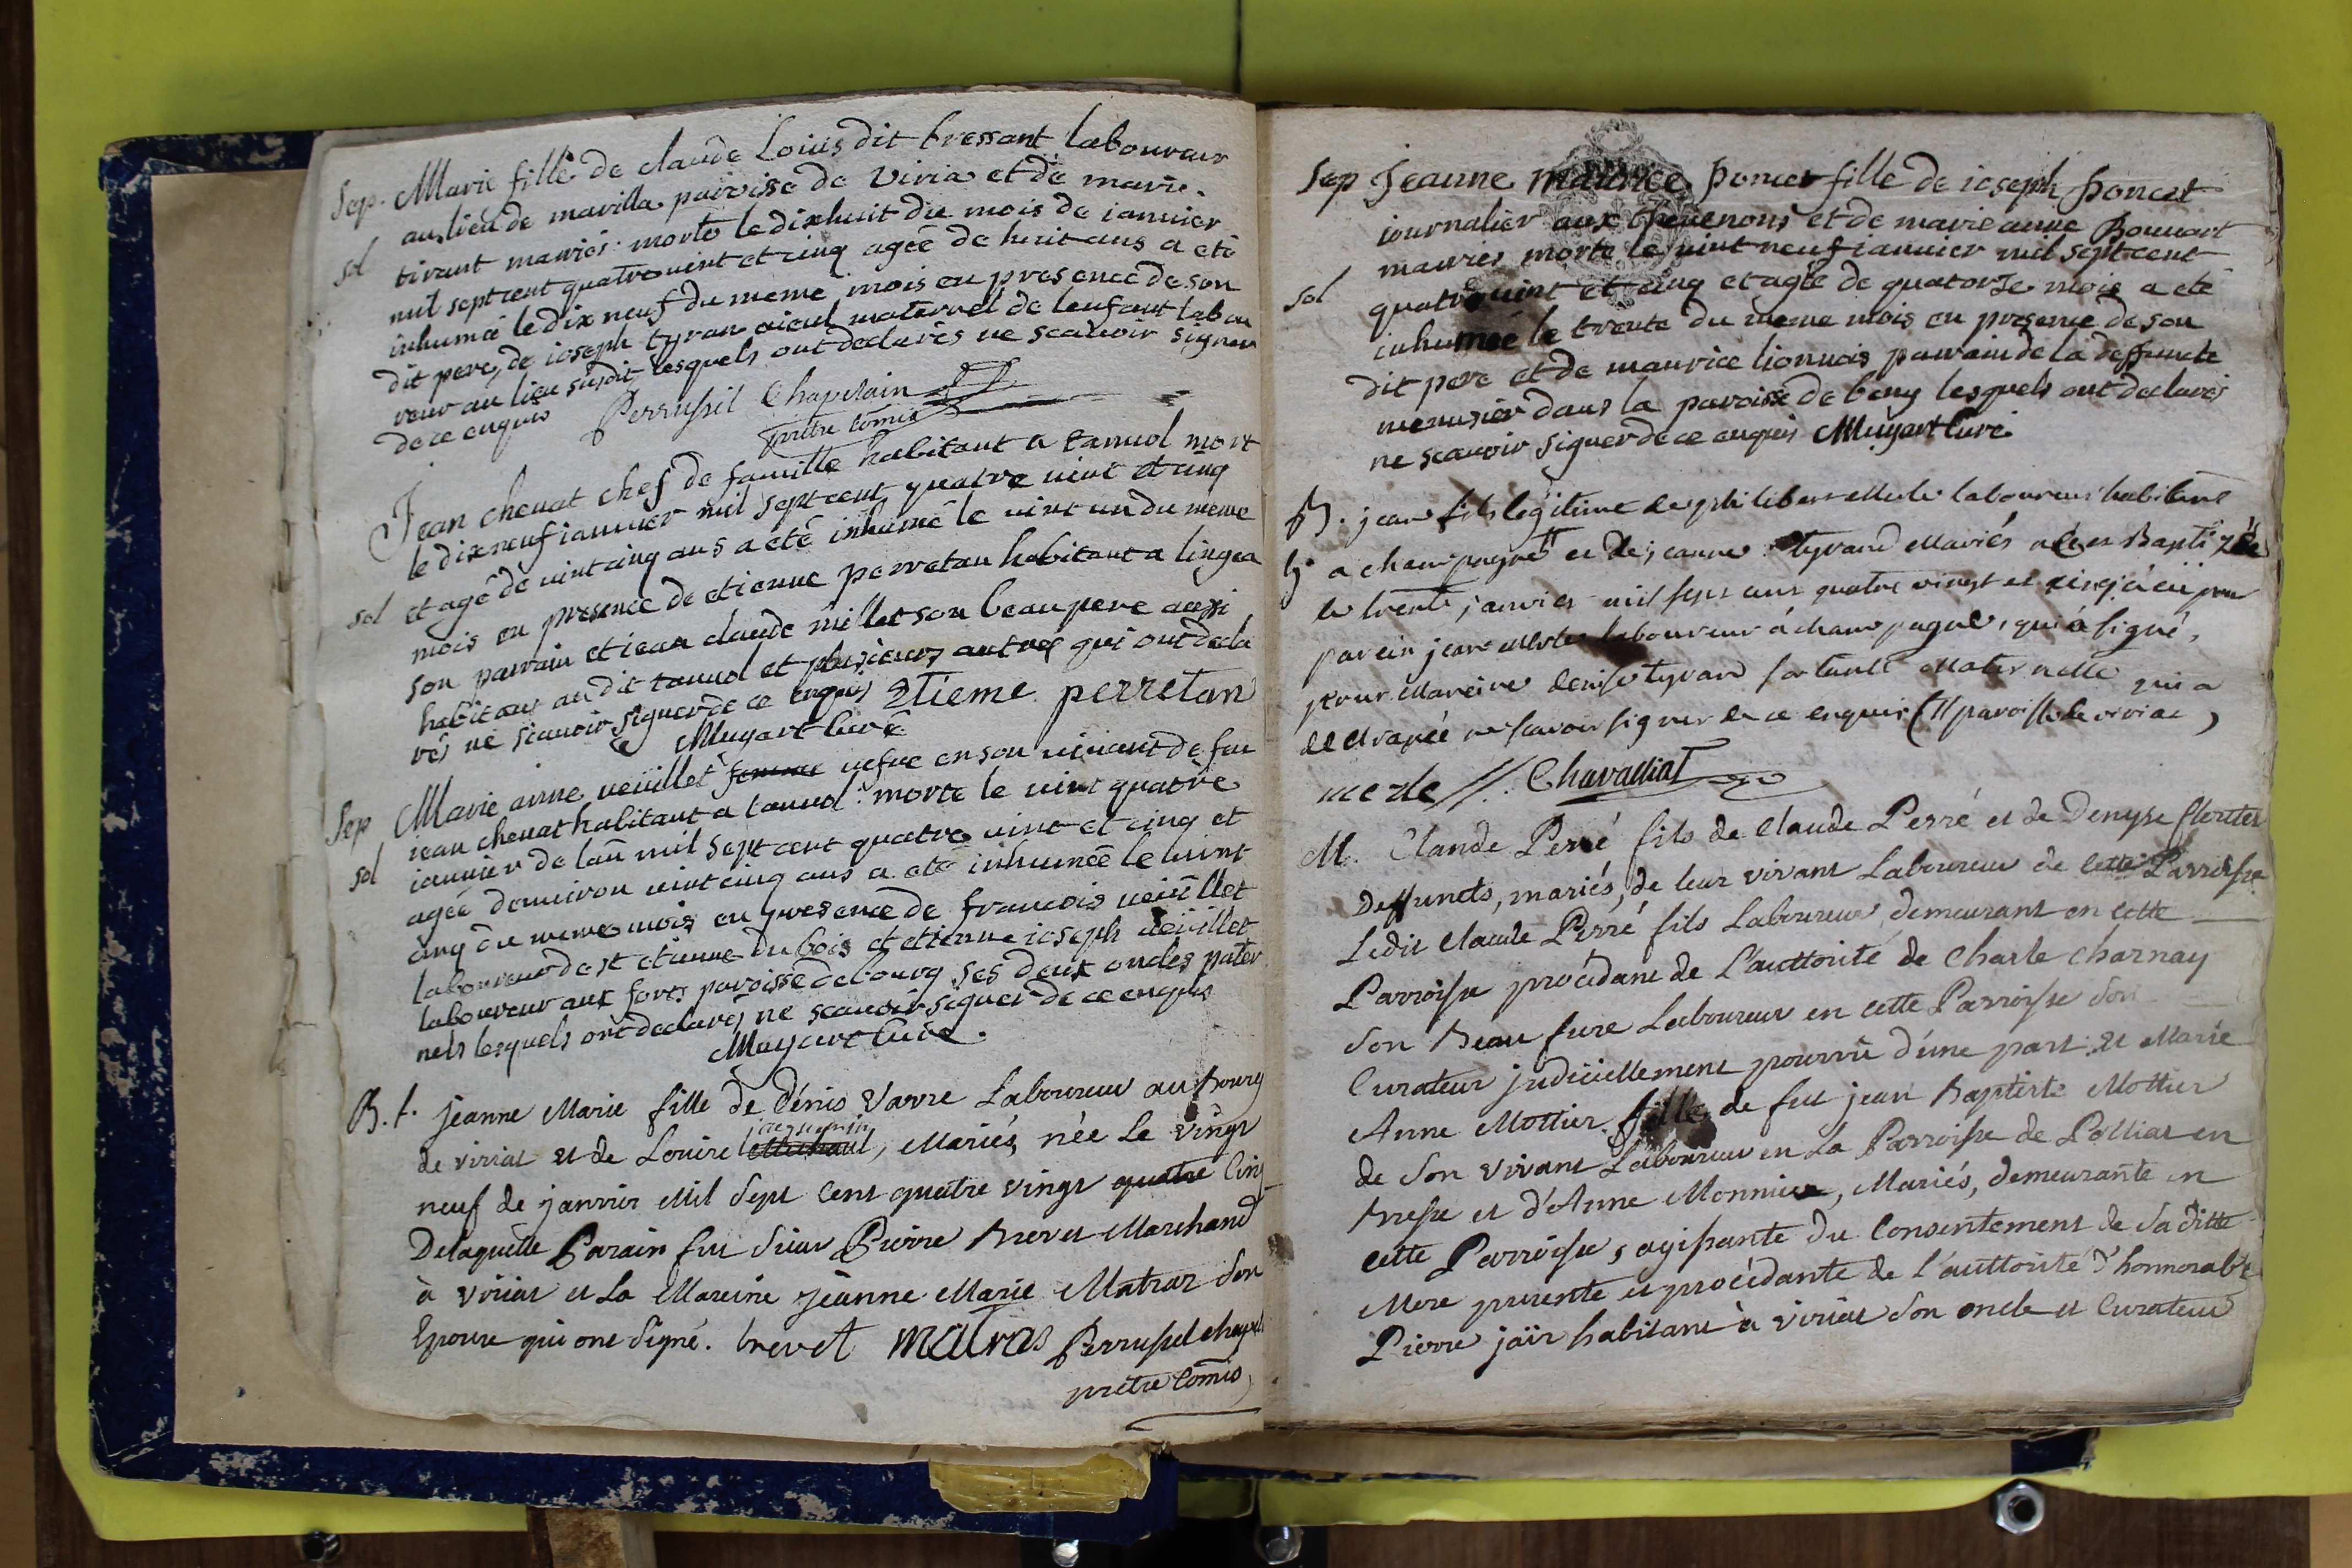 Sep. Marie fille de claude Louis dit bressant laboureur
au lieu de mavilla paroisse de Viria et de marie
sol tirant mariés. morte le dixhuit du mois de ianvier
mil sept cent quatrevint et cinq agée de huit ans a eté
inhumée le dix neuf du meme mois en presence de son
dit pere, de ioseph tyran aieul maternel de lenfant labou
reur au lieu susdit, lesquels ont declarés ne scauoir signer
de ce enquis Perrussel Chapelain
pretre comis
Jean chenat chef de famille habitant a tanuol mort
le dix neuf ianuier mil sept cent quatre vint et cinq
sol et agé de vint cinq ans a eté inhumé le vint un du meme
mois en presence de etienne perretan habitant a lingea
son parrain et iean claude millet son beau pere aussi
habitant au dit tanuol et plusieurs autres qui ont decla
rés ne scauoir signer de ce enquis Etieme perretan
Muyart Curé
Sep Marie anne veuillet femme vefue en son vivant de feu
iean chenat habitant a tanuol. morte le vint quatre
sol ianuier de lan mil sept cent quatre vint et cinq et
agée denuiron vint cinq ans a eté inhumée le vint
cinq du meme mois en presence de francois veüillet
laboureur de st etienne du bois et etienne ioseph veüillet
laboureur aux fores paroisse de bourg ses deux oncles pater
nels lesquels ont declarés ne scauoir signer de ce enquis
Muyart Curé.
B. f. jeanne Marie fille de Dénis Varre Laboureur au bourg
jacquemin
de viriat et de Louise, Mariés, née Le vingt
neuf de janvier Mil Sept Cent quatre vingt quatre Cinq
De laquelle Parain fut sieur Pierre brevet Marchand
à viriat et La Mareine jeanne Marie Matras son
Epouse qui ont signé. brevet matras Perrussel chapel
pretre Comis
Sep Jeanne maurice poncet fille de ioseph poncet
iournalier aux et de marie anne Bouuart
mariés morte le vint neuf ianuier mil sept cent
sol quatre vint et cinq et agée de quatorze mois a eté
inhumée le trente du meme mois en presence de son
dit pere et de maurice lionnois parrain de la deffuncte
menusier dans la paroisse de beny lesquels ont declarés
ne scauoir signer de ce enquis Muyart Curé
B. jean fils légitime de philibert Merle laboureur habitant
g. a champagne et de jeanne tyrand Mariés né et Baptizé
le trente janvier mil sept cent quatre vingt et cinq à eü pour
parein jean Merle laboureur à champagne, qui à signé,
pour Mareine denise tyrand sa tante Maternelle qui a
declarée ne scavoir signer de ce enquis (// paroisse de viriac)
merle //. Chavalliat
M. Claude Perré fils de Claude Perré et de Denyse
Deffuncts, mariés, de leur vivant Laboureur de cette Parroisse
Ledit Claude Perré fils Laboureur demeurant en cette
Parroisse procédant de L'authorité de Charle Charnay
son Beau frere Laboureur en cette Parroisse son
Curateur judiciellement pourvû d'une part. Et Marie
Anne Mottier fille de feu jean Baptiste Mottier
de son vivant Laboureur en La Parroisse de Polliat en
bresse et d'Anne Monnier, Mariés, demeurante en
cette Parroisse, agissante du Consentement de sa ditte
Mere presente et procédante de l'authorité d'honnorable
Pierre jaïr habitant à viriat son oncle et Curateur